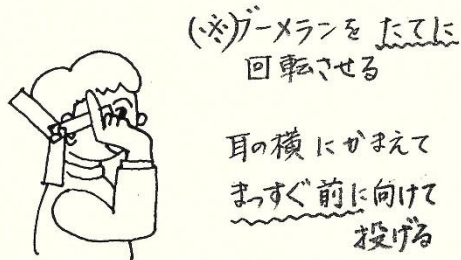 (※)ブーメランを たてに
回転させる
耳の横にかまえて
まっすぐ前に向けて
投げる